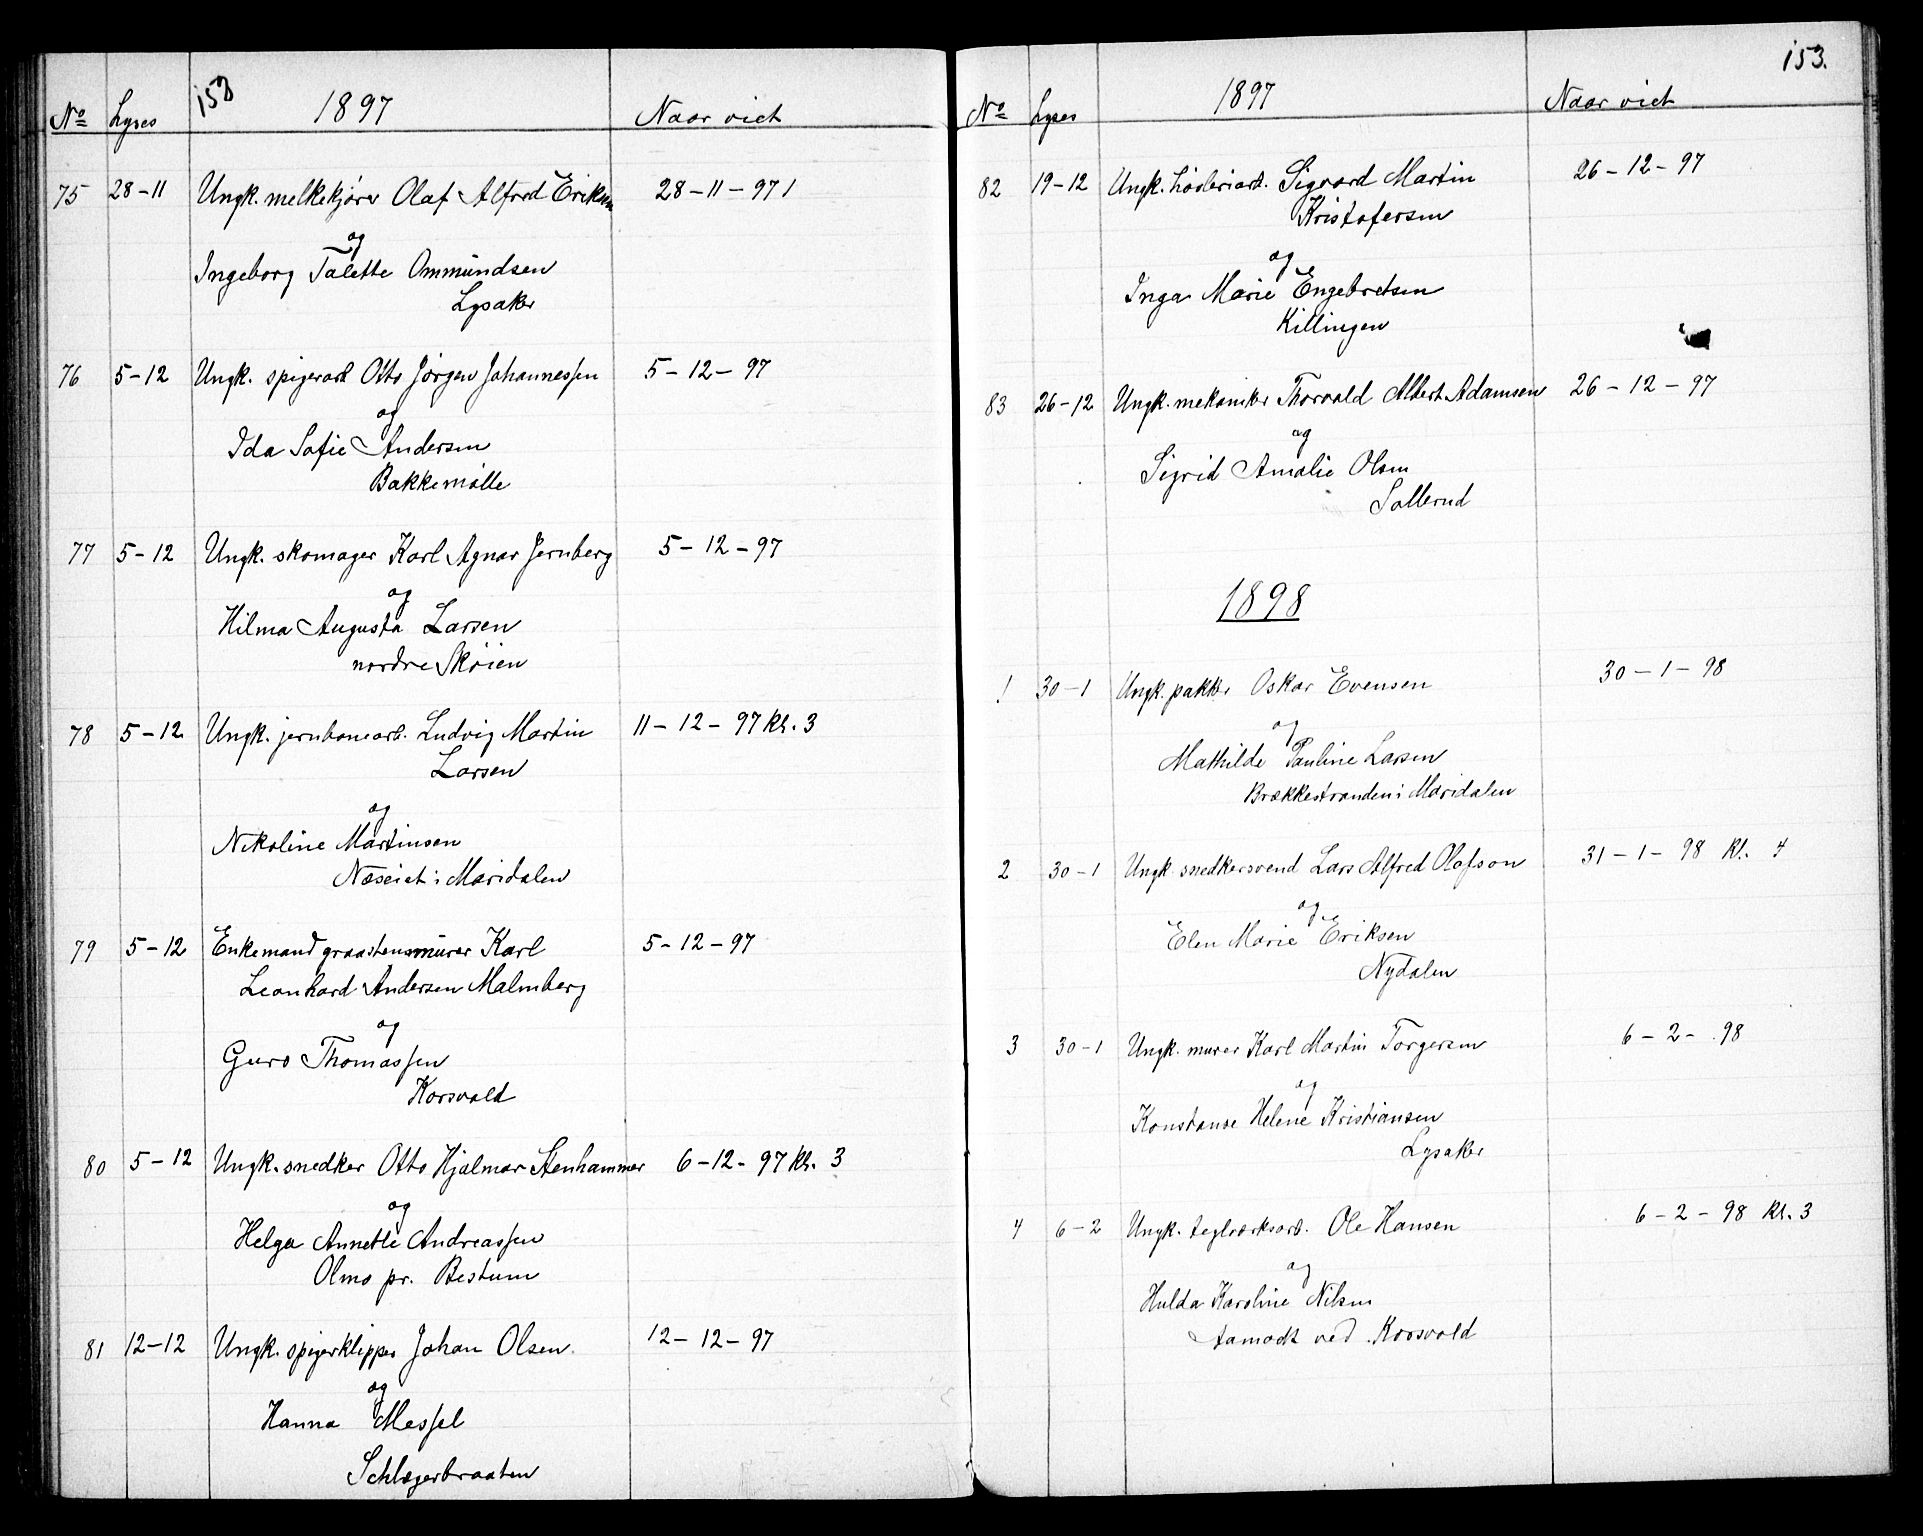 158
No Lyses 1897 Naar viet
75 28-11 Ungk. melkekjører Olaf Alfred Eriksen 28-11-97 1
og
Ingeborg Talette Ommundsen
Lysaker
76 5-12 Ungk. spigerarb Otto Jørgen Johannessen 5-12-97
og
Ida Sofie Andersen
Bakkemølle
77 5-12 Ungk. skomager Karl Agnar Jernberg 5-12-97
og
Hilma Augusta Larsen
nordre Skøien
78 5-12 Ungk. jernbanearb. Ludvig Martin 11-12-97 Kl. 3
Larsen
og
Nikoline Martinsen
Næseiet i Maridalen
79 5-12 Enkemand graastensmurer Karl 5-12-97
Leonhard Andersen Malmberg
og
Guro Thomassen
Korsvold
80 5-12 Ungk. snedker Otto Hjalmar Stenhammer 6-12-97 Kl. 3
og
Helga Annette Andreassen
Olmo pr. Bestum
81 12-12 Ungk. spigerklipper Johan Olsen. 12-12-97
og
Hanna Messel
Schlagerbraaten
153.
No Lyses 1897 Naar viet
82 19-12 Ungk. Sigvard Martin 26-12-97
Kristofersen
og
Inga Marie Engebretsen
Killingen
83 26-12 Ungk. mekaniker Thorvald Albert Adamsen 26-12-97
og
Sigrid Amalie Olsen
Sollerud
1898
1 30-1 Ungk. pakker Oskar Evensen 30-1-98
og
Mathilde Pauline Larsen
Brækkestranden i Maridalen
2 30-1 Ungk. snedkersvend Lars Alfred Olafson 31-1-98 Kl. 4
og
Elen Marie Eriksen
Nydalen
3 30-1 Ungk. murer Karl Martin Torgersen 6-2-98
og
Konstanse Helene Kristiansen
Lysaker
4 6-2 Ungk. teglværksarb. Ole Hansen 6-2-98 Kl. 3
og
Hulda Karoline Nilsen
Aamodt ved Korsvold